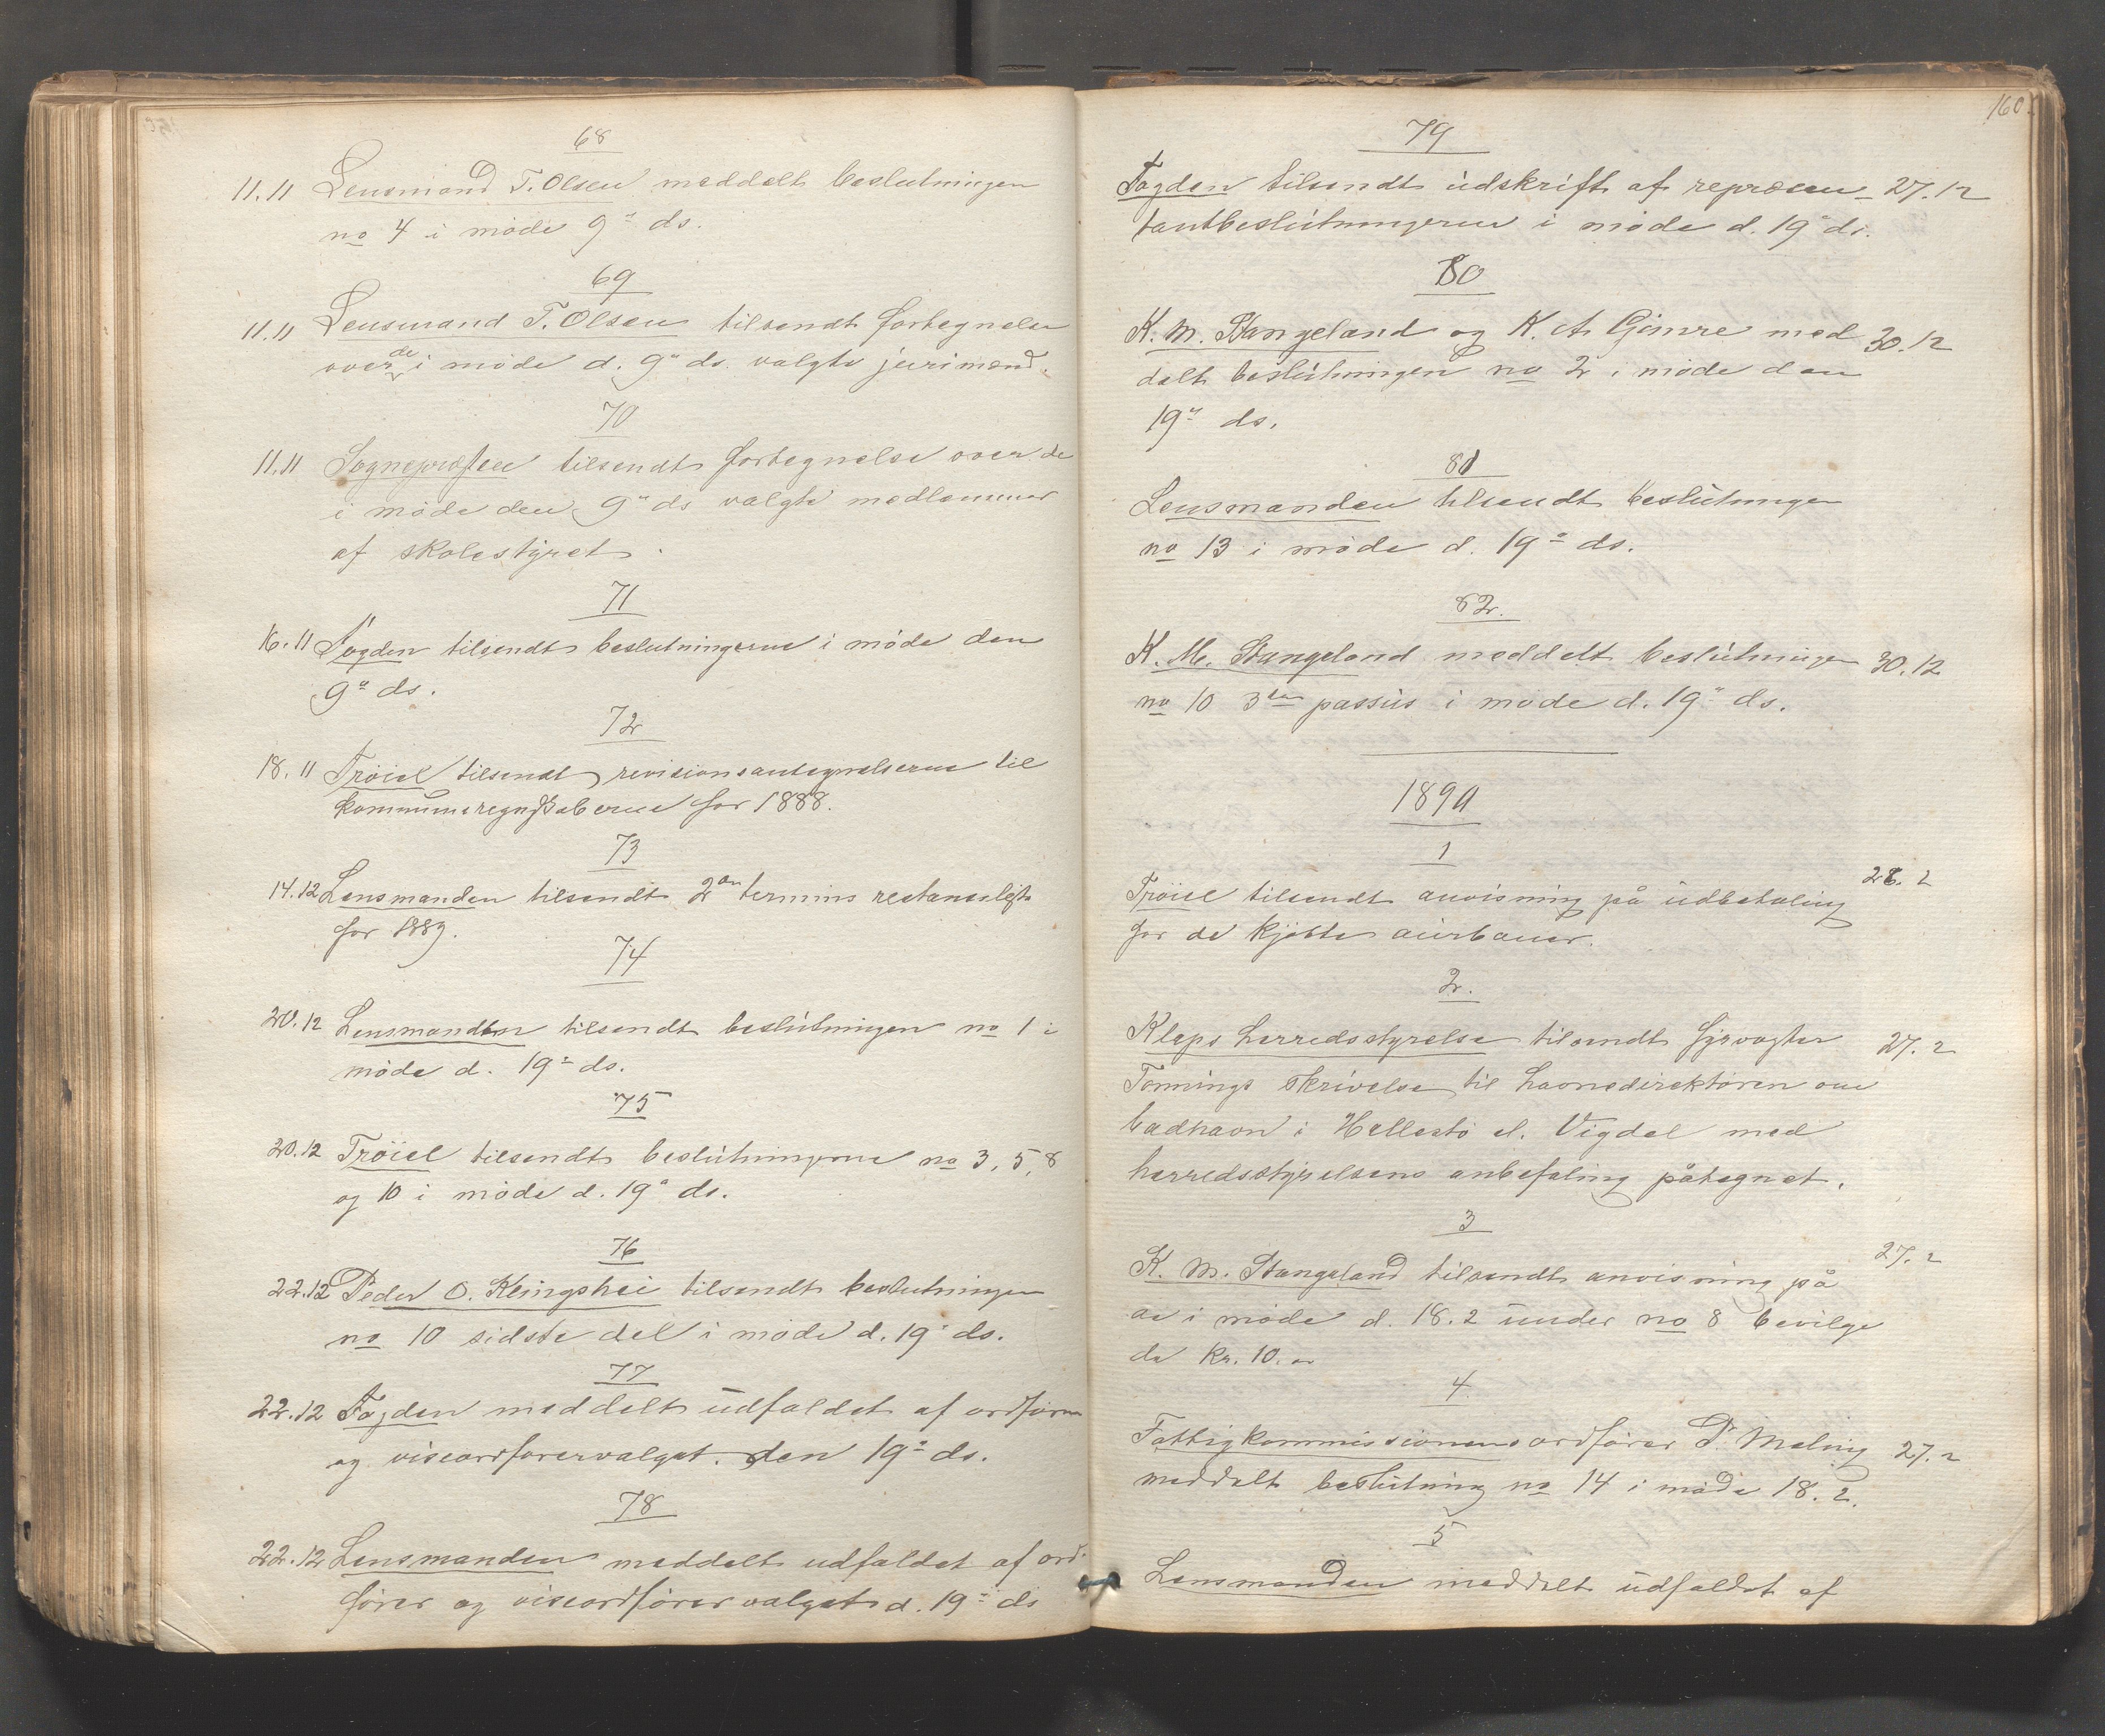 68
11.11 Lensmand T. Olsen meddelt beslutningen
no 4 i møde 9de ds.
69
11.11 Lensmand T. Olsen tilsendt fortegnelse
over de i møde d. 9de ds. valgte jurimænd.
70
11.11 Sognepræsten tilsendt fortegnelse over de
i møde den 9de ds valgte medlemmer
af skolestyret.
71
16.11 Fogden tilsendt beslutningerne i møde den
9de ds.
72
18.11 Trøiel tilsendt revisionsantegnelserne til
kommuneregnskaberne for 1888.
73
14.12 Lensmanden tilsendt 2den termins restanseliste
for 1889.
74
20.12 Lensmanden tilsendt beslutningen no 1 i
møde d. 19de ds.
75
20.12 Trøiel tilsendt beslutningerne no 3, 5, 8
og 10 i møde d. 19de ds.
76
22.12 Peder O. Klingshei tilsendt beslutningen
no 10 sidste del i møde d. 19de ds.
77
22.12 Fogden meddelt udfaldet af ordfører
og viseordførervalget den 19de ds.
78
22.12 Lensmanden meddelt udfaldet af ord-
fører og viseordførervalget d. 19de ds
160.
79
Fogden tilsendt udskrift af repræsen- 27.12
tantbeslutningerne i møde d. 19de ds.
80
K. M. Stangeland og K. A. Gimre med 30.12
delt beslutningen no 2 i møde den
19de ds.
81
Lensmanden tilsendt beslutningen
no 13 i møde d. 19de ds.
82.
K. M. Stangeland meddelt beslutningen 30.12
no 10 3die passus i møde d. 19de ds.
1890
1
Trøiel tilsendt anvisning på udbetaling 26.2
for de kjøbte
2.
Kleps herredsstyrelse tilsendt fyrvogter 27.2
Tonnings skrivelse til havnedirektøren om
badhavn i Hellestø el. Vigdel med
herredsstyrelsens anbefaling påtegnet.
3
K. M. Stangeland tilsendt anvisning på 27.2
de i møde d. 18.2 under no 8 bevilge
de kr. 10.00
4.
Fattigkommissionens ordfører P. Meling 27.2
meddelt beslutning no 14 i møde 18.2.
5
Lensmanden meddelt udfaldet af